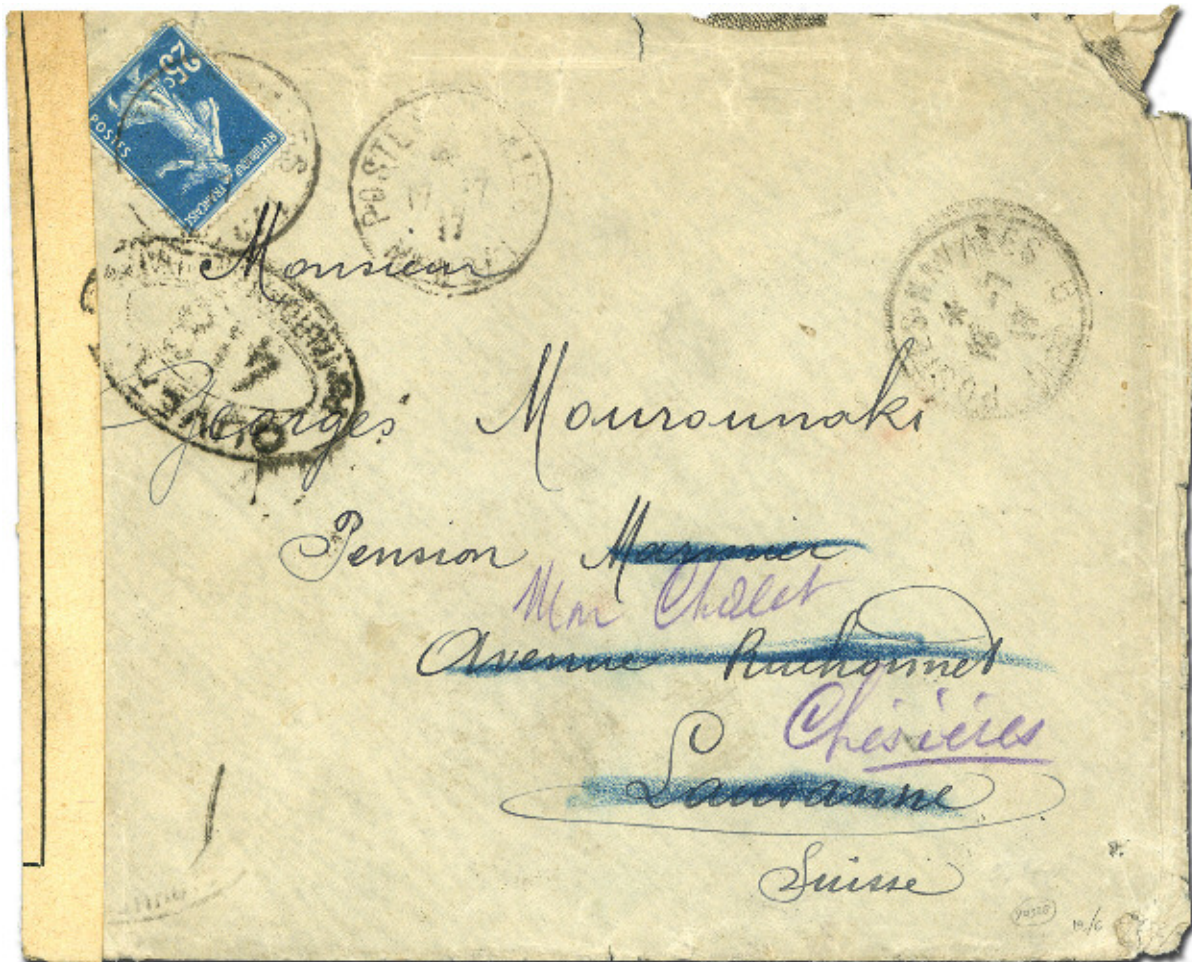 25c
POSTES
REPUBLIQUE FRANÇAISE
17 -7
17
Monsieur
OUVERT
Georges Mourounaki
Pension Marmier
Mon Châlet
Avenue Ruchonnet
Chésières
Lausanne
Suisse